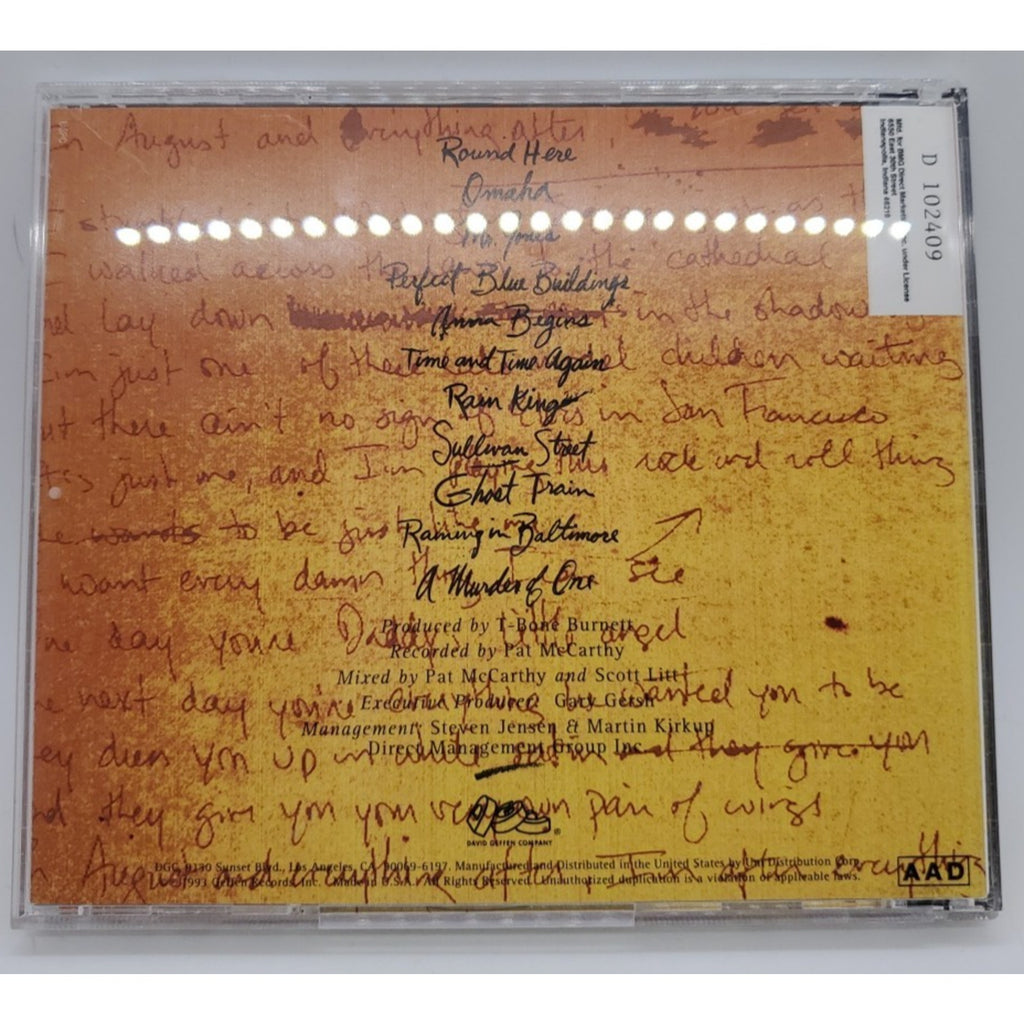 In August and Everything after
Round Here
Omaha
Mr. Jones
I walked across the cathedral
Perfect Blue Buildings
lay down in the shadow
Anna Begins
Time and Time Again
I'm just one of the children waiting
Rain King
but there ain't no sign of in San Francisco
Sullivan Street
just me, and I'm this rock and roll thing
Ghost Train
wants to be just
Raining in Baltimore
want every damn see
A Murder of One
Produced by T-Bone Burnett
one day you're Daddy's little angel
Recorded by Pat McCarthy
Mixed by Pat McCarthy and Scott Litt
next day you're wanted you to be
Executive Producer: Gary Gersh
Management: Steven Jensen & Martin Kirkup
Direct Management Group Inc.
dress you up in white and they give you
and they give you your very own pair of wings
DAVID GEFFEN COMPANY
®
DGC, 9130 Sunset Blvd., Los Angeles, CA. 90069-6197. Manufactured and Distributed in the United States by Uni Distribution Corp.
1993 Geffen Records, Inc. Made in U.S.A. All Rights Reserved. Unauthorized duplication is a violation of applicable laws.
August everything
AAD
D 102409
Mfd. for BMG Direct Marketing, Inc. under License
6550 East 30th Street
Indianapolis, Indiana 46219